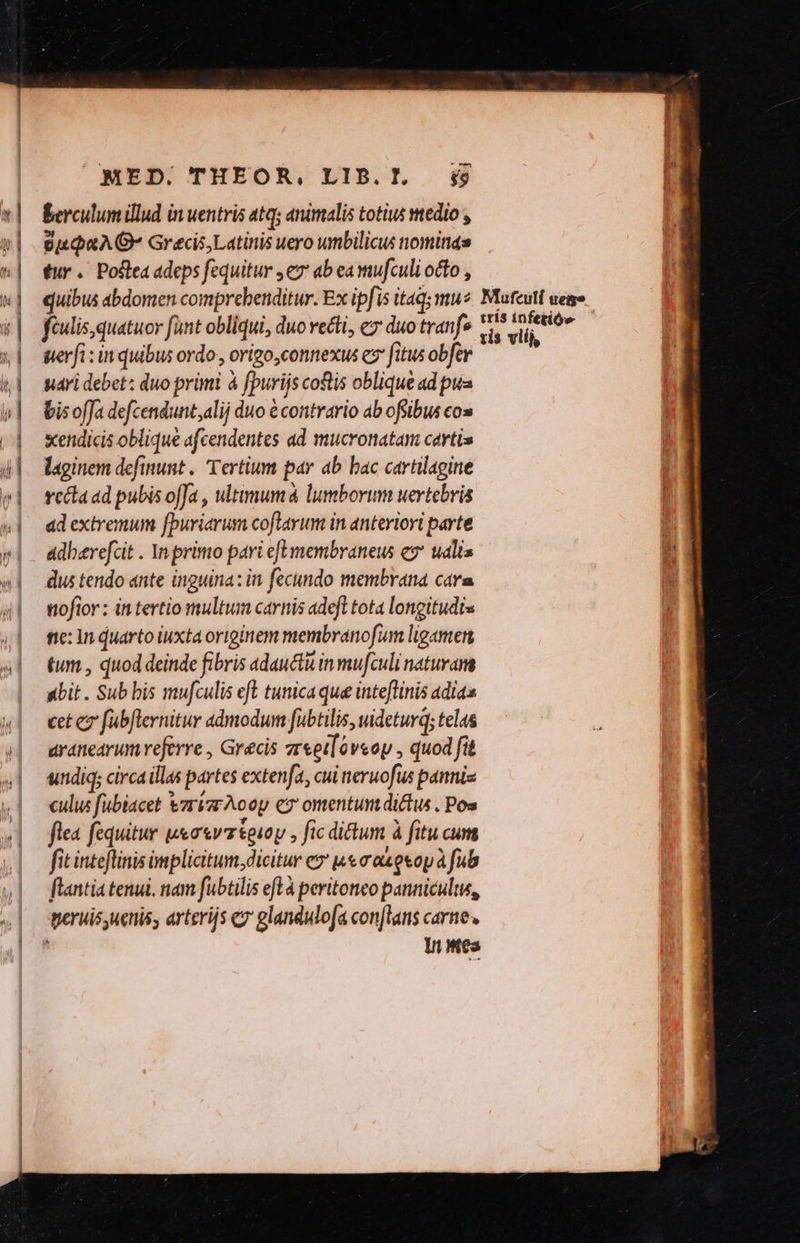 MED. THEOR. LIB. I.
berculum illud in uentris atq; animalis totius medio,
ὄμφαλος Græcis, Latinis uero umbilicus nomina⸗
tur. Postea adeps sequitur, & ab ea musculi octo,
quibus abdomen comprehenditur. Ex ipsis itaq; mu⸗
sculis, quatuor sunt obliqui, duo recti, & duo transf⸗
uersi: in quibus ordo, origo, connexus & situs obser
uari debet: duo primi à spurijs costis oblique ad pu⸗
bis ossa descendunt, alij duo è contrario ab ossibus co⸗
xendicis oblique ascendentes ad mucronatam carti⸗
laginem desinunt. Tertium par ab hac cartilagine
recta ad pubis ossa, ultimum à lumborum uertebris
ad extremum spuriarum costarum in anteriori parte
adhærescit. In primo pari est membraneus & uali⸗
dus tendo ante inguina: in secundo membrana car⸗
nosior: in tertio multum carnis adest tota longitudi⸗
ne: In quarto iuxta originem membranosum ligamen
tum, quod deinde fibris adauctū in musculi naturam
abit. Sub his musculis est tunica quæ intestinis adia⸗
cet & substernitur admodum subtilis, uideturq; telas
aranearum referre, Græcis περιτόνεον, quod fit
undiq; circa illas partes extensa, cui neruosus panni⸗
culus subiacet ἐπίπλοον & omentum dictus. Po⸗
stea sequitur μεσεντέριον, sic dictum à situ cum
fit intestinis implicitum, dicitur & μεσάρεον à sub
stantia tenui. nam subtilis est à peritoneo panniculus,
neruis, uenis, arterijs & glandulosa constans carne.
In mes
Musculi uen⸗
tris inferio⸗
ris viij.